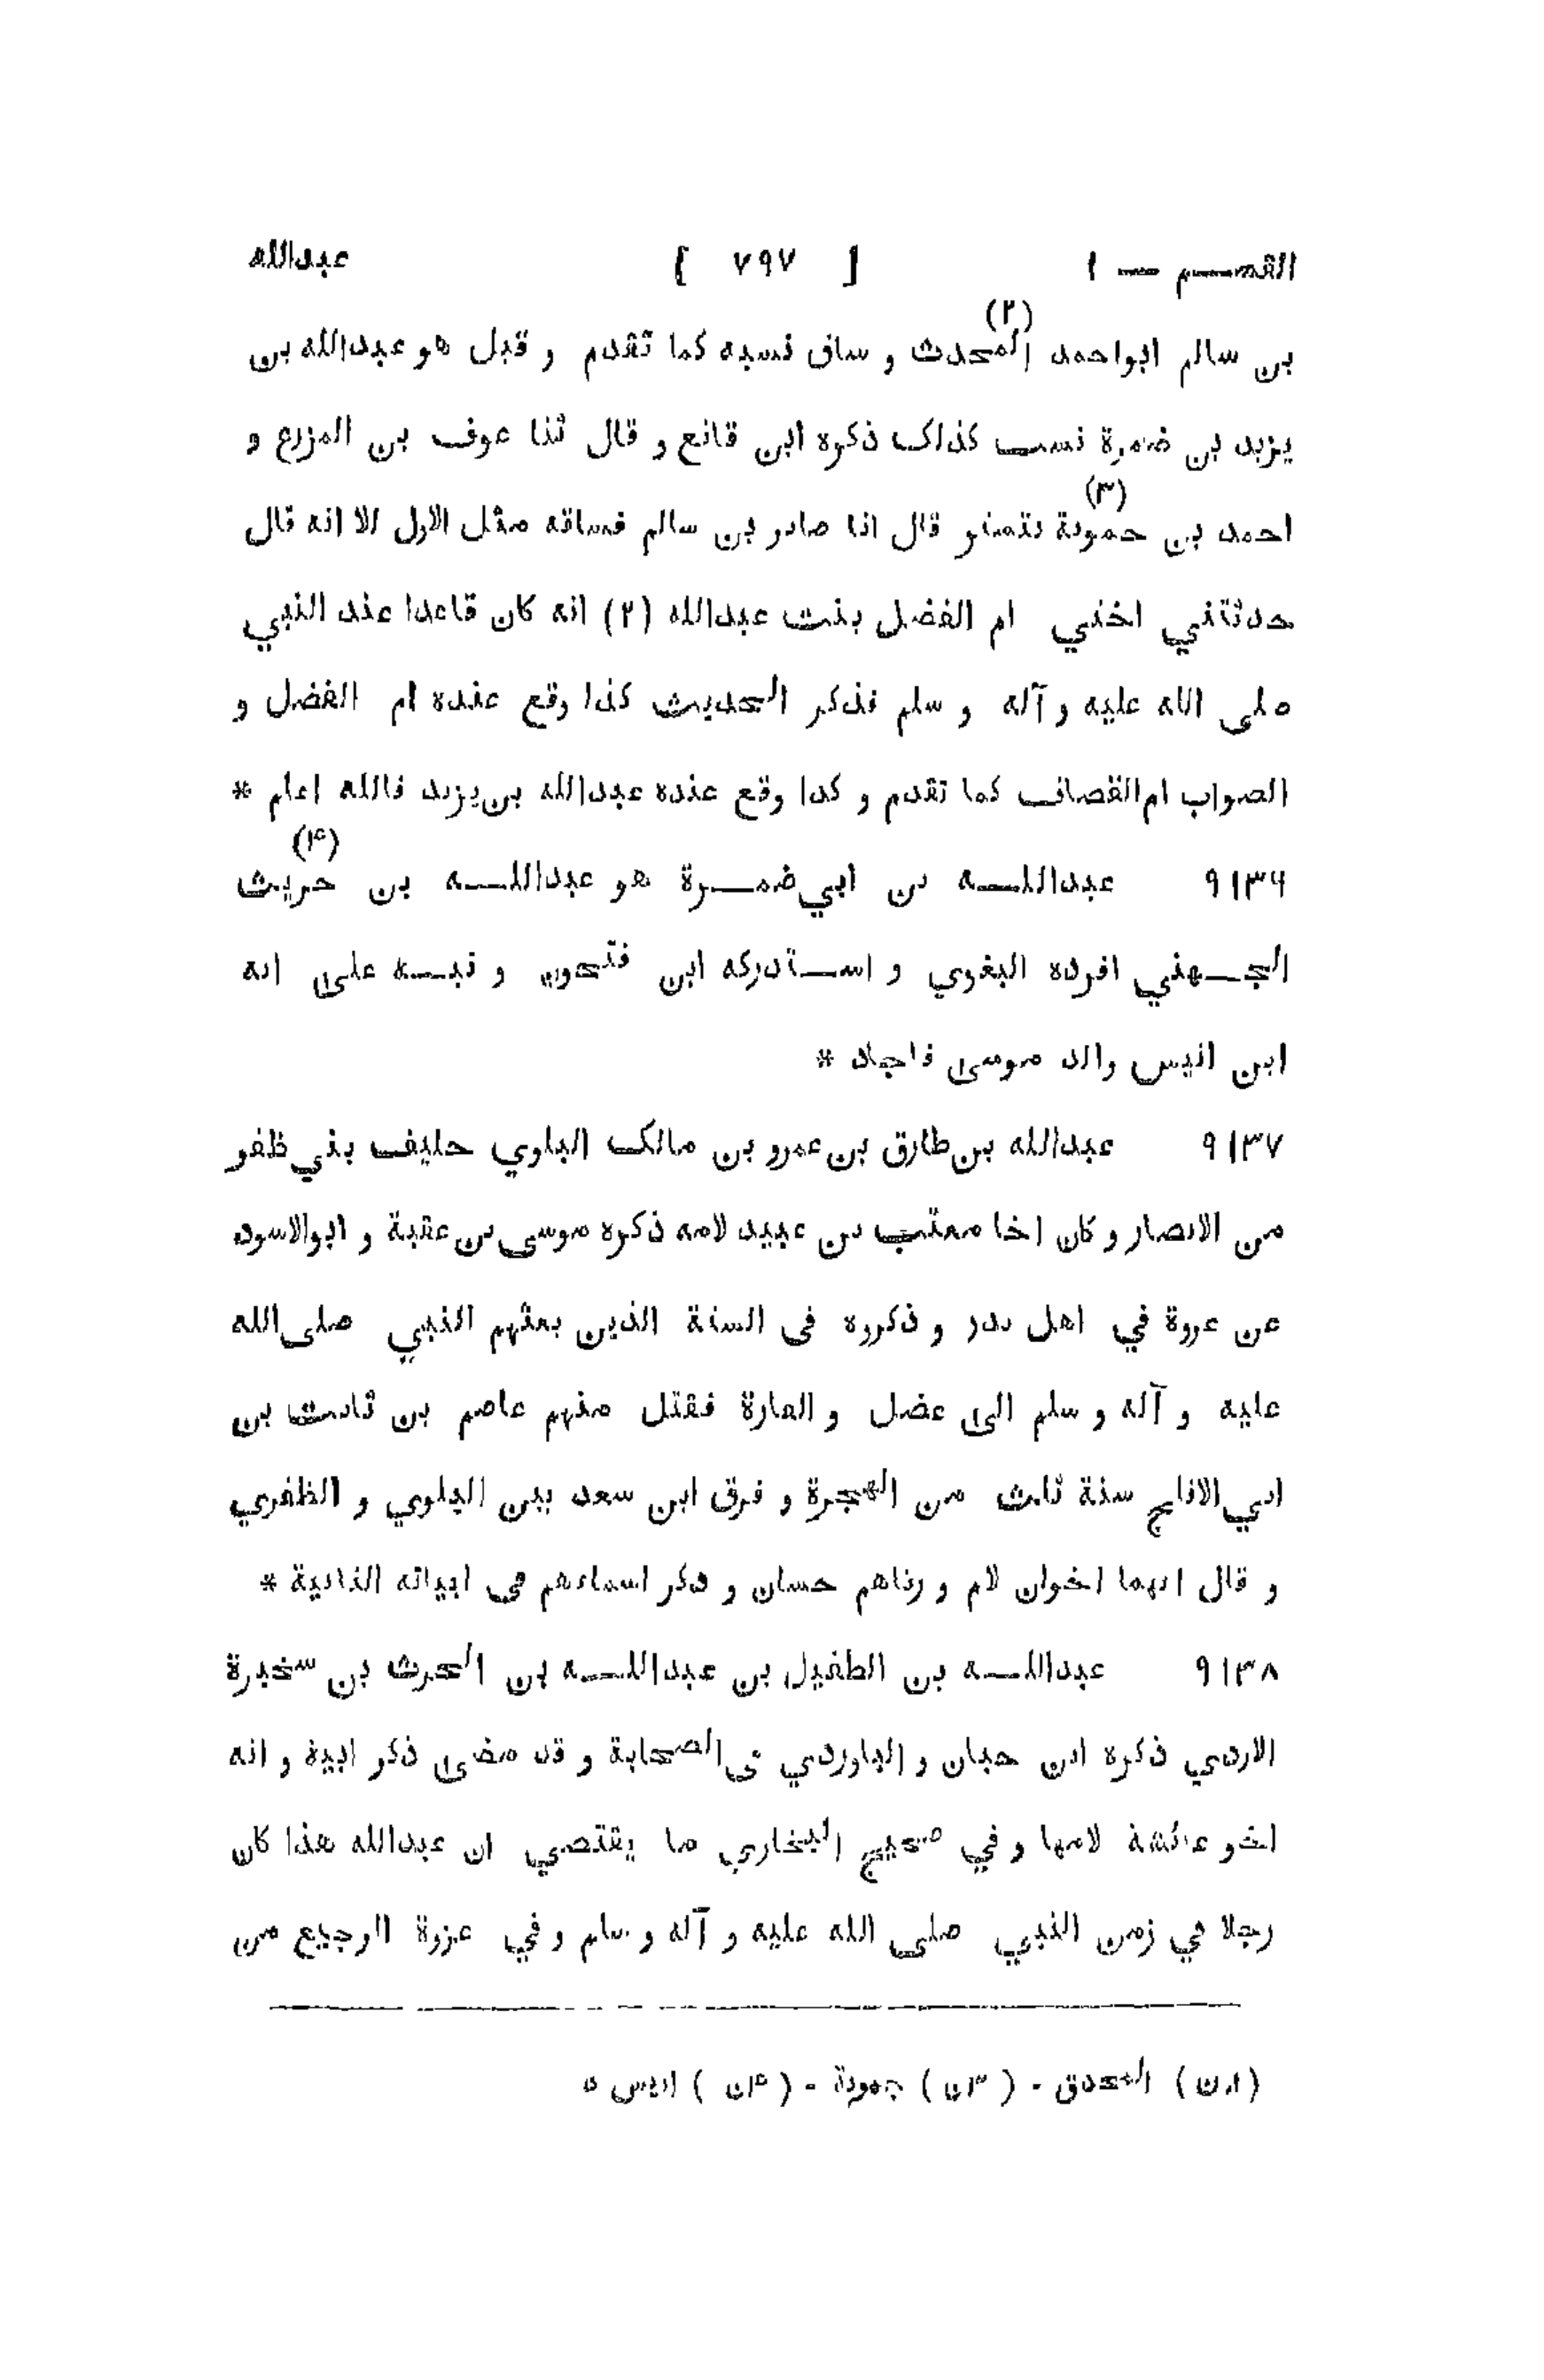 القسم — ١ [ ٧٩٧ ] عبدالله
بن سالم ابواحمد المحدث (٢) و ساق نسبه كما تقدم و قيل هو عبدالله بن
يزيد بن ضمرة نسب كذلك ذكره ابن قانع و قال ثنا عوف بن المزرع و
احمد بن حموية (٣) بتستر قال انا صابر بن سالم فساقه مثل الاول الا انه قال
حدثتني اختي ام الفضل بنت عبدالله (٢) انه كان قاعدا عند النبي
صلى الله عليه و آله و سلم فذكر الحديث كذا وقع عنده ام الفضل و
الصواب ام القصاف كما تقدم و كذا وقع عنده عبدالله بن يزيد فالله اعلم *
٩١٣٦ عبدالله بن ابي ضمرة هو عبدالله بن حريث (٤)
الجهني افرده البغوي و استدركه ابن فتحون و نبه على انه
ابن انيس والد موسى فاجاد *
٩١٣٧ عبدالله بن طارق بن عمرو بن مالك البلوي حليف بني ظفر
من الانصار و كان اخا معتب بن عبيد لامه ذكره موسى بن عقبة و ابوالاسود
عن عروة في اهل بدر و ذكروه في الستة الذين بعثهم النبي صلى الله
عليه و آله و سلم الى عضل و القارة فقتل منهم عاصم بن ثابت بن
ابي الاقلح سنة ثلث من الهجرة و فرق ابن سعد بين البلوي و الظفري
و قال انهما اخوان لام و رثاهم حسان و ذكر اسماءهم في ابياته الذائية *
٩١٣٨ عبدالله بن الطفيل بن عبدالله بن الحرث بن سخبرة
الازدي ذكره ابن حبان و الباوردي في الصحابة و قد مضى ذكر ابيه و انه
اخو عائشة لامها و في صحيح البخاري ما يقتضي ان عبدالله هذا كان
رجلا في زمن النبي صلى الله عليه و آله و سلم و في غزوة الرجيع من
المحدق - ( ٣ن ) جموية - ( ٤ن ) انيس *